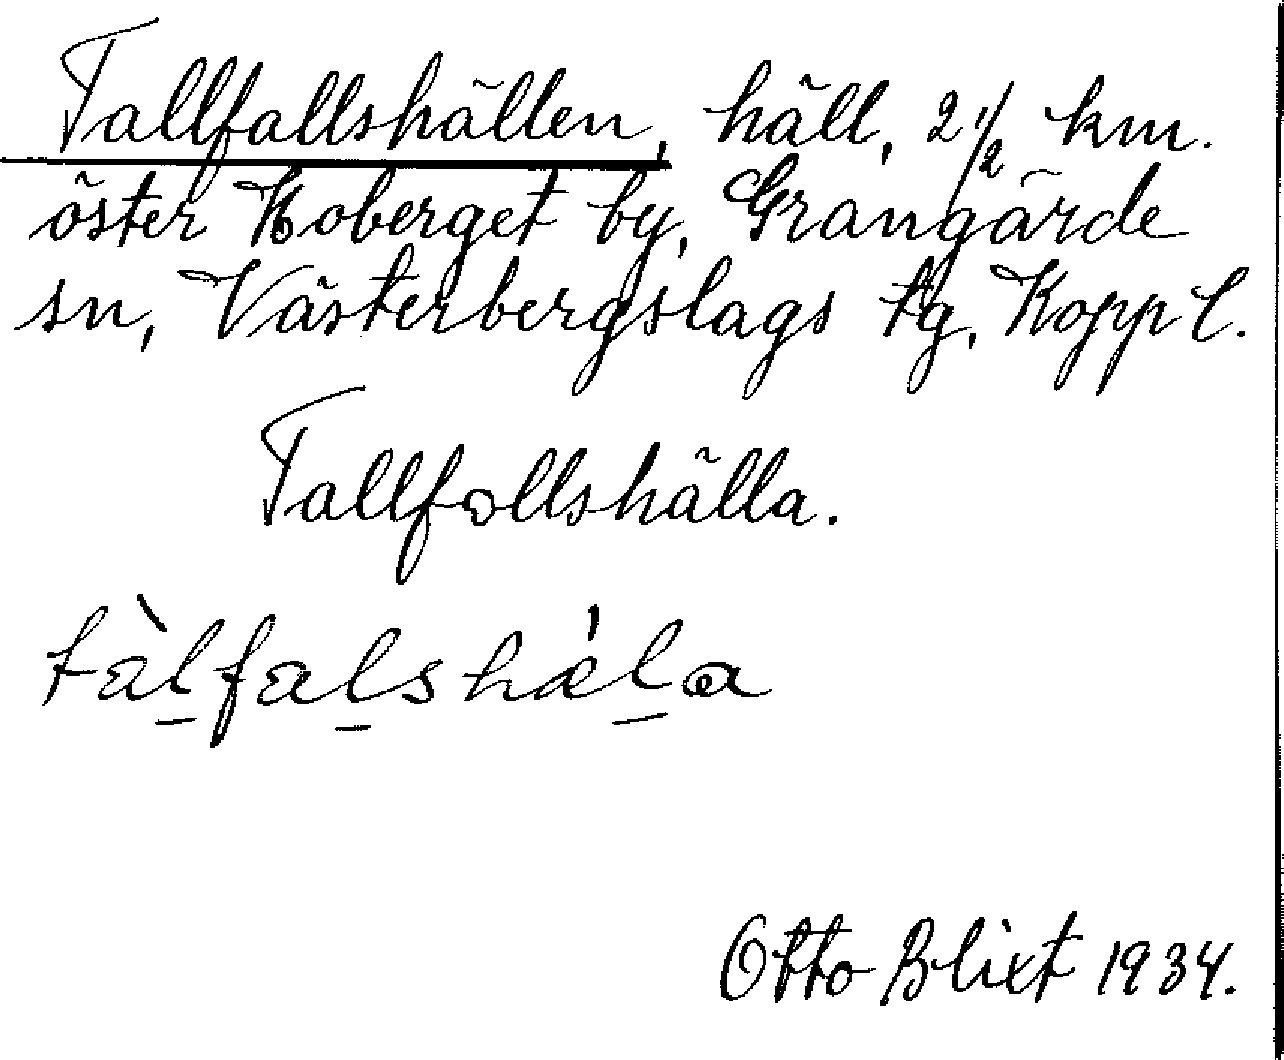 Tallfallshällen, häll, 2 1/2 km.
öster Hoberget by, Grangärde
sn, Västerbergslags tg, Kopp l.
Tallfallshälla.
tàl̲fal̲shæ̍l̲a
Otto Blixt 1934.